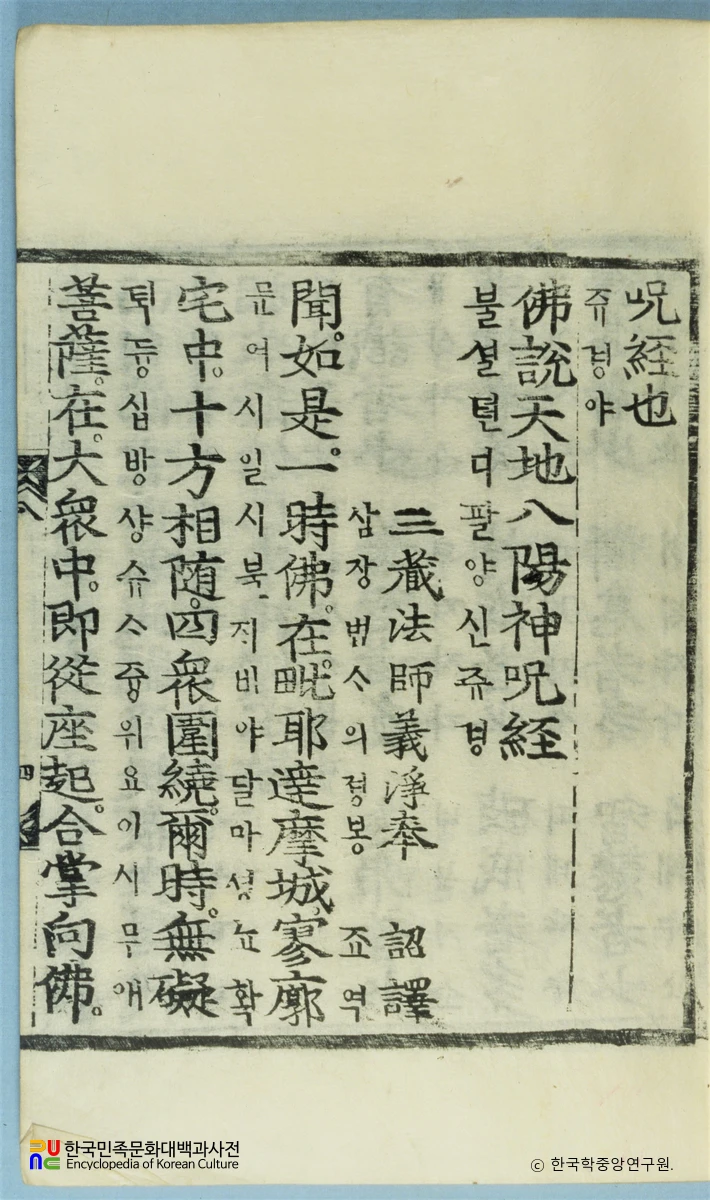 呪経也
쥬경야
佛說天地八陽神呪経
불셜텬디팔양신쥬경
三藏法師義淨奉 詔譯
삼장법ᄉ의졍봉 죠역
聞。如是。一時佛。在。毗耶達摩城。寥廓
문여시일시북ᄌᆡ비야달마셩뇨확
宅中。十方相随。四衆圍繞。爾時。無礙
퇵듕십방샹슈ᄉ즁위요이시무애
菩薩。在。大衆中。即從座起。合掌向佛。
四
한국민족문화대백과사전
Encyclopedia of Korean Culture
ⓒ 한국학중앙연구원.